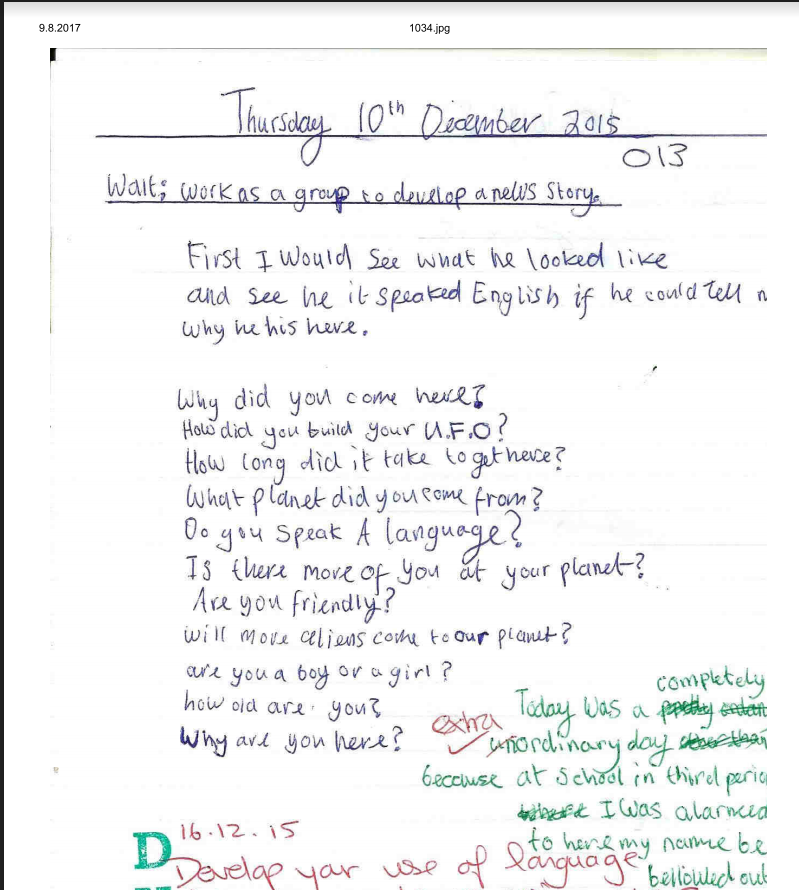 9.8.2017
1034.jpg
Thursday 10th December 2015
013
Walt; work as a group to develop a news Story.
First I Would See what he looked like
and see he it speaked English if he could tell m
why he his here.
Why did you come here?
How did you build your U.F.O?
How long did it take to get here?
What planet did you come from?
Do you speak A language?
Is there more of you at your planet?
Are you friendly?
will more aliens come to our planet?
are you a boy or a girl?
how old are you?
Why are you here?
completely
Today was a pretty
extra
unordinary day other than
because at school in third perio
where I was alarmed
to here my name be
bellowed out
16.12.15
D
Develop your use of language